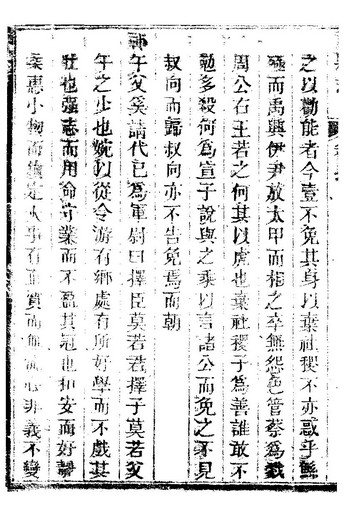 之以勸能者今壹不免其身以棄社稷不亦惑乎鯀
殛而禹興伊尹放太甲而相之卒無怨色管蔡為戮
周公右王若之何其以虎也棄社稷子為善誰敢不
勉多殺何為宣子說與之乘以言諸公而免之不見
叔向而歸叔向亦不告免焉而朝
祁午父奚請代已為軍尉曰擇臣莫若君擇子莫若父
午之少也婉以從令游有鄉處有所好學而不戲其
壯也彊志而用命守業而不淫其冠也和安而好敬
柔惠小物而鎮定大事有直質而無流心非義不變